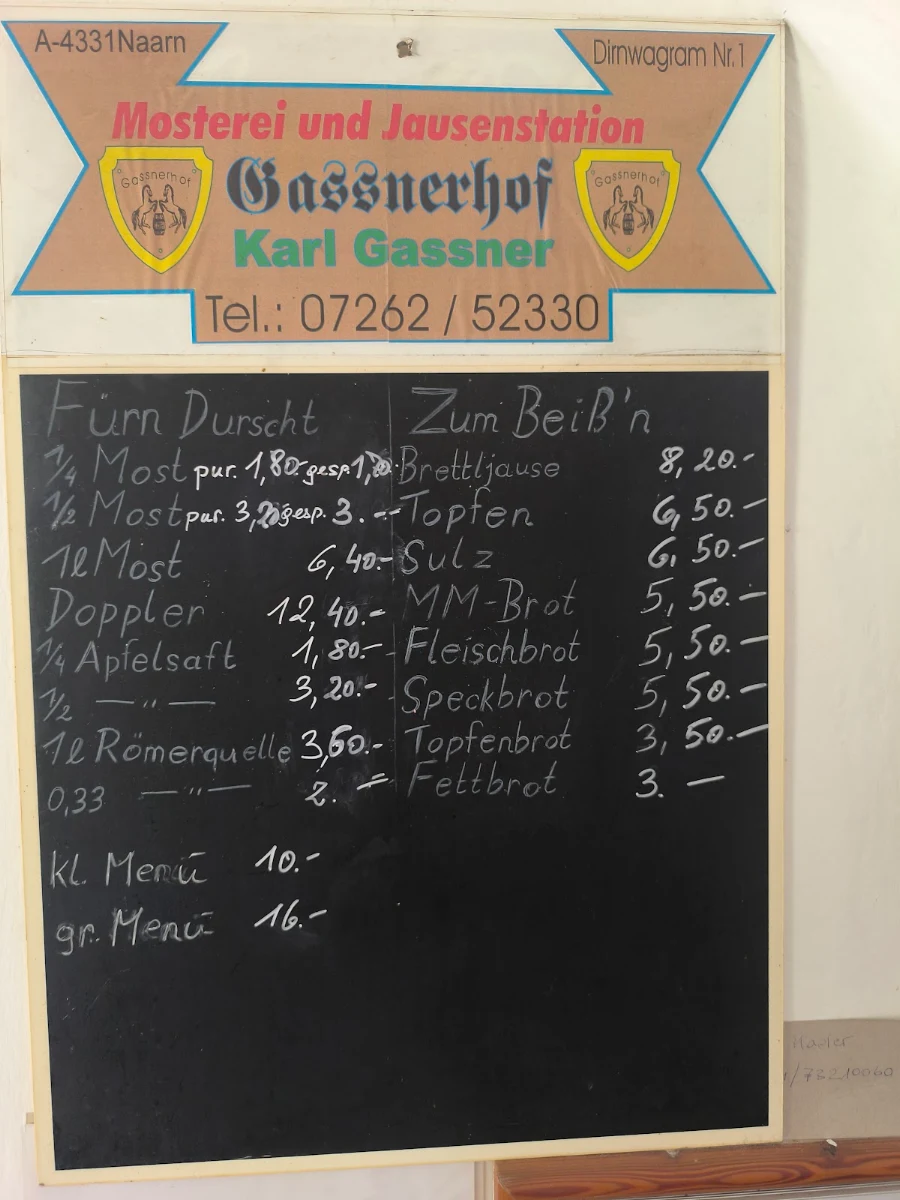 A-4331Naarn
Dirnwagram Nr.1
Mosterei und Jausenstation
Gassnerhof
Gassnerhof
Gassnerhof
Karl Gassner
Tel.: 07262 / 52330
Fürn Durscht
1/4 Most pur. 1,80.- gesp.
1/2 Most pur. 3,20 gesp. 3.--
1l Most 6,40.-
Doppler 12,40.-
1/4 Apfelsaft 1,80.-
1/2 —"— 3,20.-
1l Römerquelle 3,60.-
0,33 —"— 2.—
kl. Menü 10.-
gr. Menü 16.-
Zum Beiß'n
Brettljause 8,20.-
Topfen 6,50.-
Sulz 6,50.-
MM-Brot 5,50.-
Fleischbrot 5,50.-
Speckbrot 5,50.-
Topfenbrot 3,50.-
Fettbrot 3.—
/73210060